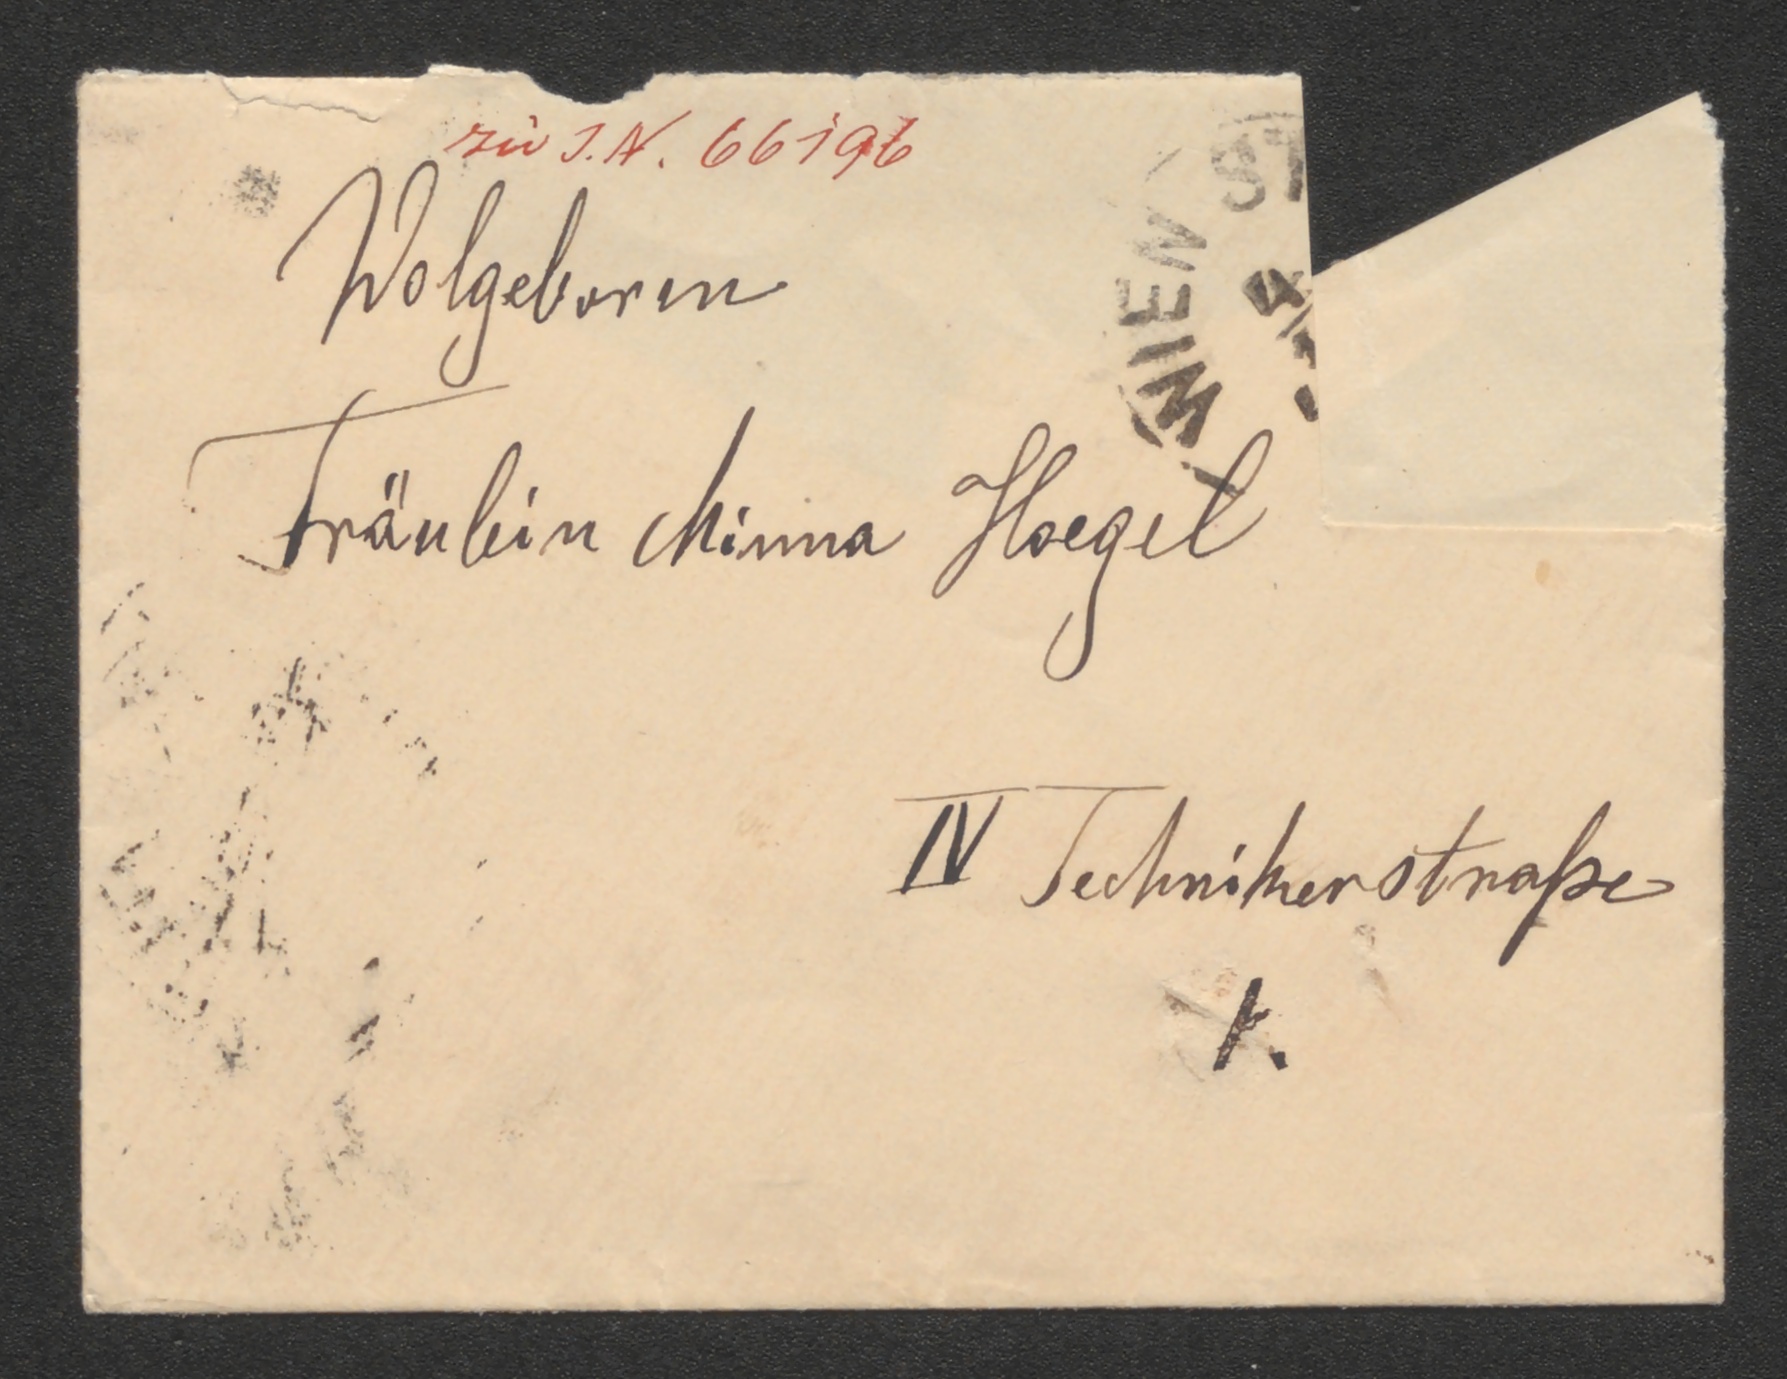 zu I.N. 66196
WIEN
Wolgeboren
Fräulein Minna Hoegel
IV Technikerstraße
1.